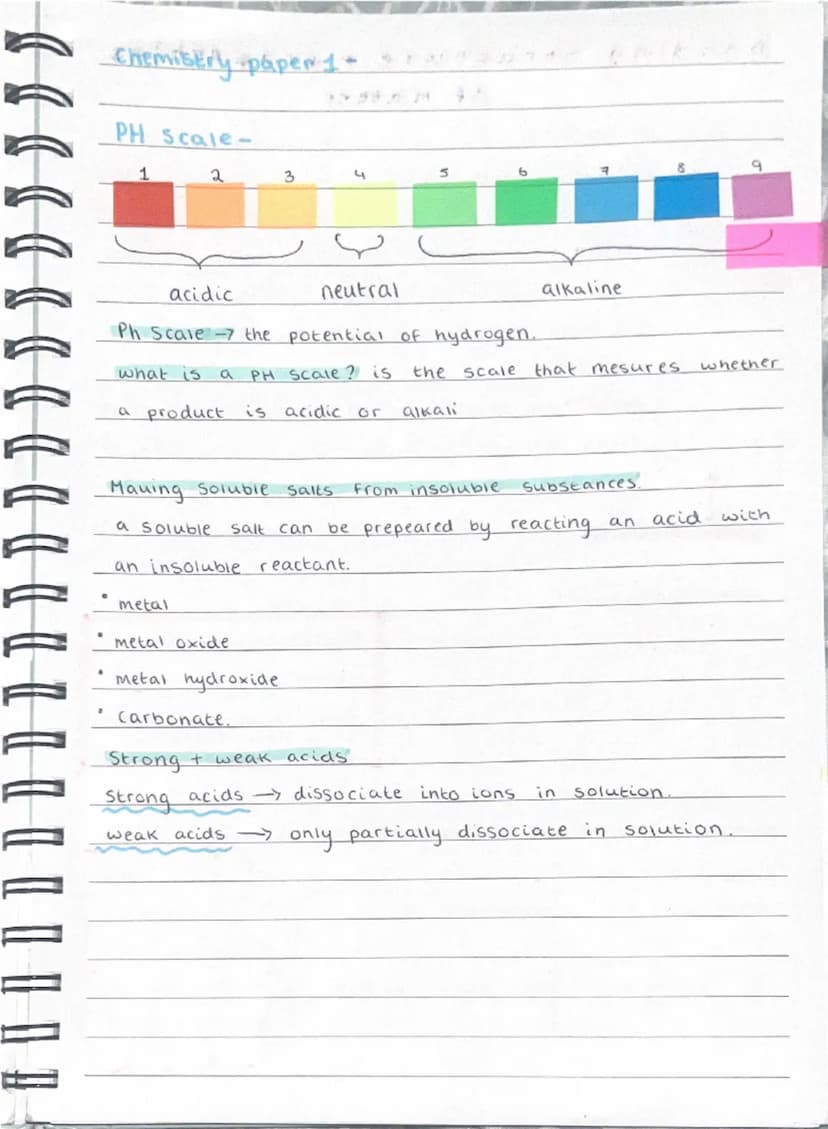 Chemistry paper 1 -
PH Scale -
1 2 3 4 5 6 7 8 9
acidic neutral alkaline
Ph Scale → the potential of hydrogen.
what is a PH scale? is the scale that mesures whether
a product is acidic or alkali
Making soluble salts from insoluble substances.
a soluble salt can be prepeared by reacting an acid with
an insoluble reactant.
• metal
• metal oxide
• metal hydroxide
• carbonate.
Strong + weak acids
Strong acids → dissociate into ions in solution.
weak acids → only partially dissociate in solution.